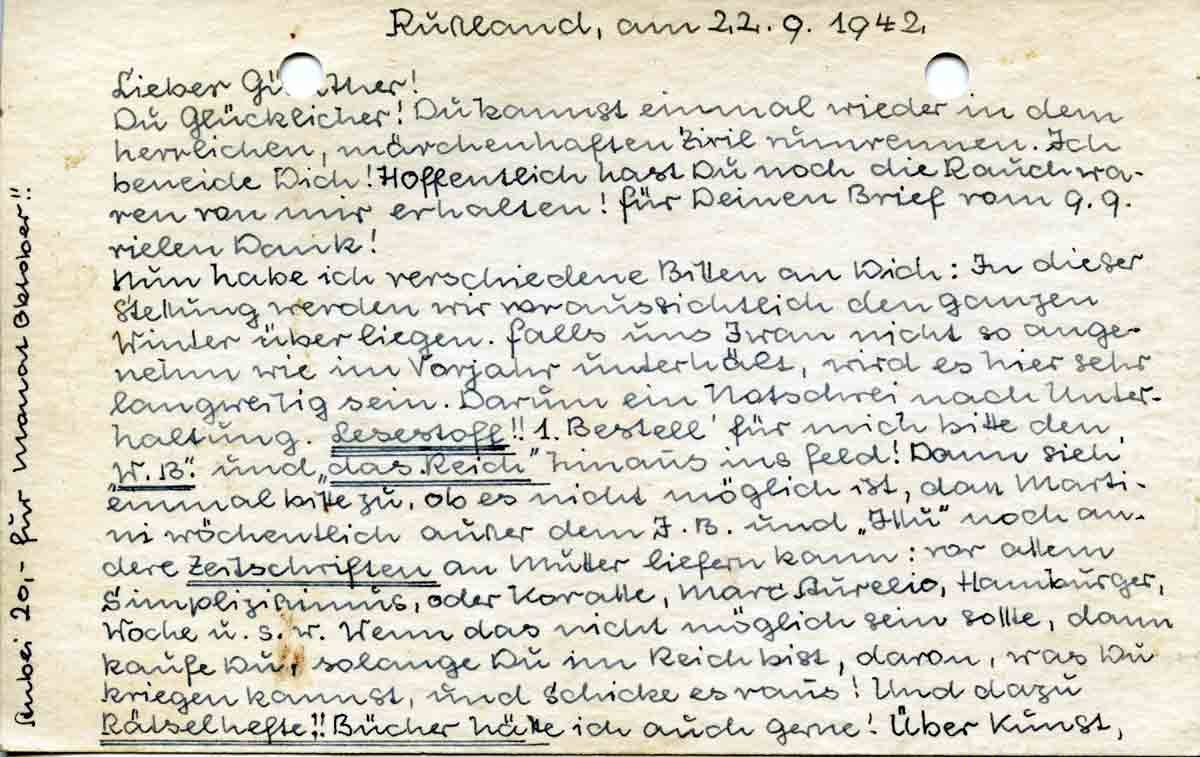 Rußland, am 22. 9. 1942.
Lieber Günther!
Du Glücklicher! Du kannst einmal wieder in dem
herrlichen, märchenhaften Zivil rumrennen. Ich
beneide Dich! Hoffentlich hast Du noch die Rauchwa-
ren von mir erhalten! Für Deinen Brief vom 9. 9.
vielen Dank!
Nun habe ich verschiedene Bitten an Dich: In dieser
Stellung werden wir voraussichtlich den ganzen
Winter über liegen. Falls uns Iwan nicht so ange-
nehm wie im Vorjahr unterhält, wird es hier sehr
langweilig sein. Darum ein Notschrei nach Unter-
haltung. Lesestoff!! 1. Bestell' für mich bitte den
"W. B." und "das Reich" hinaus ins Feld! Dann sieh
einmal bitte zu, ob es nicht möglich ist, daß Marti-
ni wöchentlich außer dem J. B. und "Illu" noch an-
dere Zeitschriften an Mutter liefern kann: vor allem
Simplizissimus, oder Koralle, Marc Aurelio, Hamburger,
Woche u. s. w. Wenn das nicht möglich sein sollte, dann
kaufe Du, solange Du im Reich bist, davon, was Du
kriegen kannst, und schicke es raus! Und dazu
Rätselhefte!! Bücher hätte ich auch gerne! Über Kunst,
Anbei 20,- für Monat Oktober!!